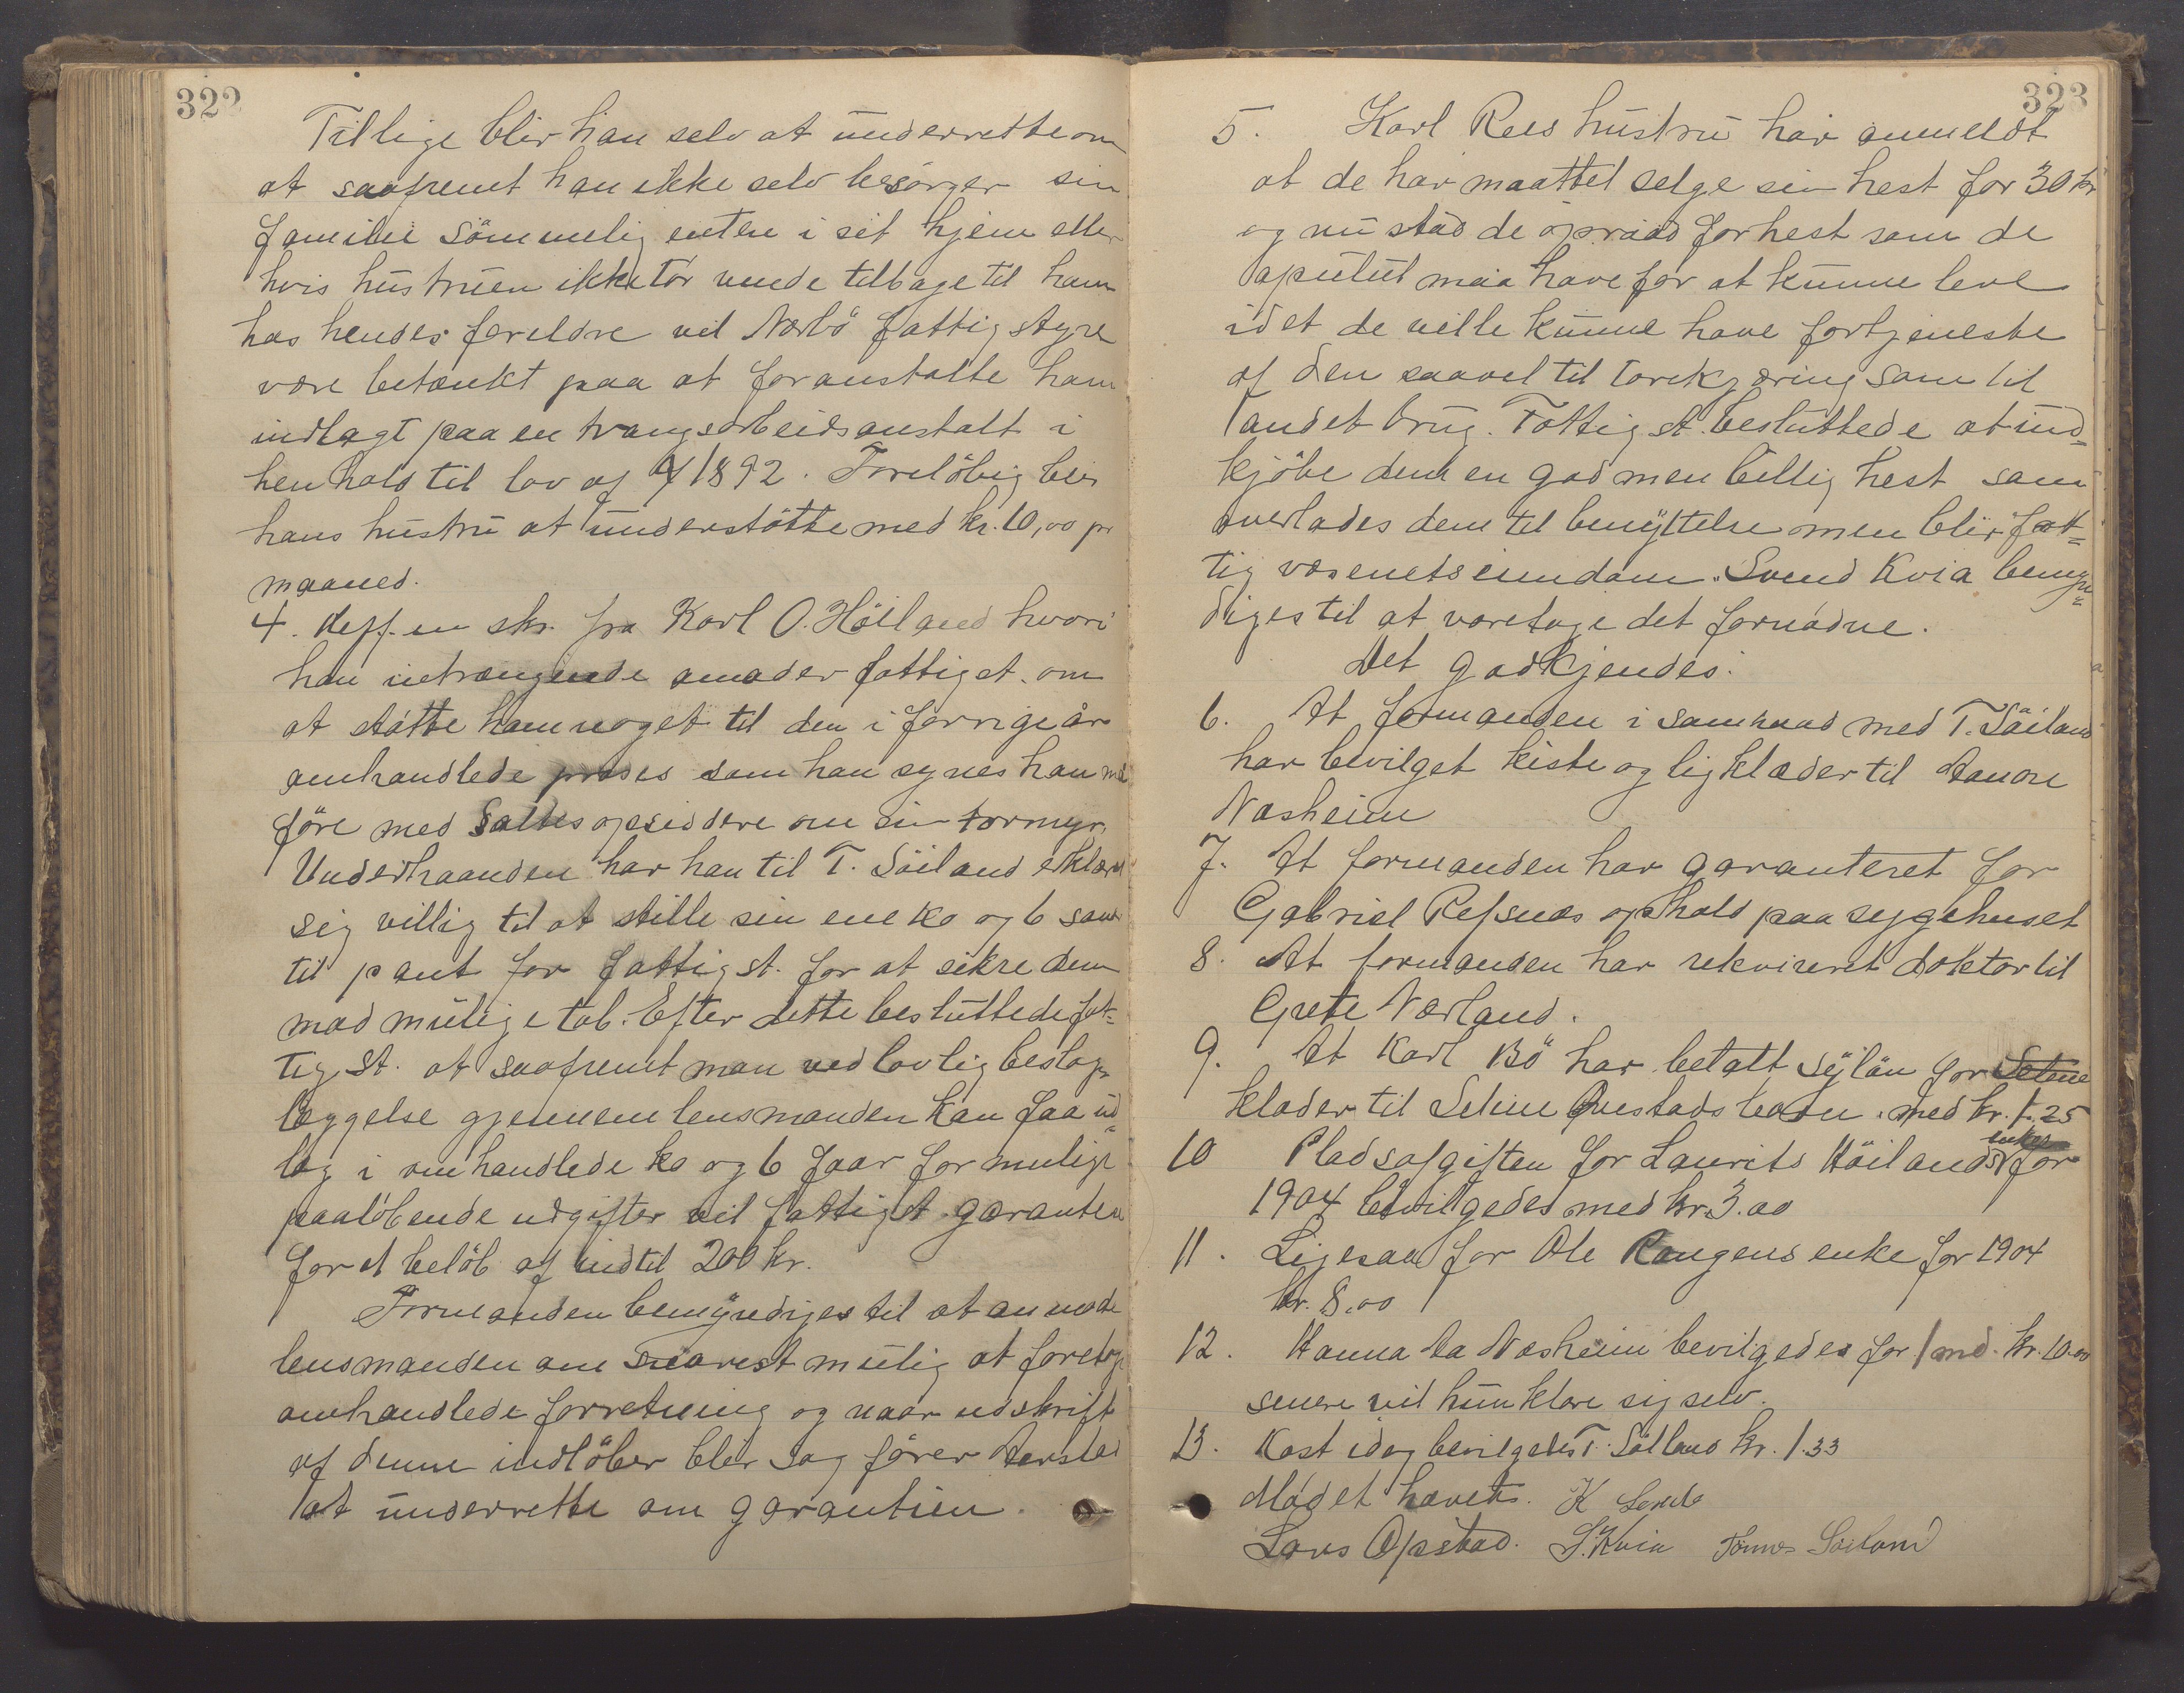 322
Tillige blir han selv at underrette om
at saafremt han ikke selv besörger sin
familie sömmelig enten i sit hjem eller
hvis hustruen ikke tör vende tilbage til ham
hos hendes foreldre vil Nærbö fattigstyre
være betænkt paa at foranstalte ham
indlagt paa en tvangsarbeidsanstalt i
henhold til lov af 1892. Forelöbig blir
hans hustru at understötte med kr. 10,00 pr
maaned.
4. Reff. en skr. fra Karl O. Höiland hvori
han indtrængende anmoder fattigst. om
at stötte ham noget til den i forrige år
omhandlede proses som han synes han må
före med Saltes opsiddere om sin tormyr.
Underhaanden har han til T. Söiland erklært
sig villig til at stille sin ene ko og 6 sauer
til pant for fattigst. for at sikre dem
mod mulige tab. Efter dette besluttede fat-
tigst. at saafremt man ved lovlig beslag-
læggelse gjennem lensmanden kan faa ud-
læg i omhandlede ko og 6 faar for mulige
paalöbende udgifter vil fattigst. garantere
for et belöb af indtil 200 kr.
Formanden bemyndiges til at anmode
lensmanden om snarest mulig at foretage
omhandlede forretning og naar udskrift
af denne indlöber blir sagförer Aarstad
at underrette om garantien.
323
5. Karl Rees hustru har anmeldt
at de har maattet selge sin hest for 30 kr
og nu stod de opraad for hest som de
apsulut maa have for at kunne leve
idet de ville kunne have fortjeneste
af den saavel til torvkjøring som til
andet brug. Fattigst. besluttede at ind-
kjöbe dem en god men billig hest som
overlades dem til benyttelse men blir fat-
tigvæsenets eiendom. Svend Kvia bemyn-
diges til at varetage det fornødne.
Det godkjendes:
6. At formanden i samraad med T. Söiland
har bevilget kiste og ligklæder til
Næsheim
7. At formanden har garanteret for
Gabriel Refsnæs ophold paa sygehuset
8. At formanden har rekvireret doktor til
Grete Nærland.
9. At Karl Bö har betalt sylön for Seline
klæder til Seline Qvestads barn. med kr. 1.25
10 Pladsafgiften for Laurits Höilands enke for
1904 bevilgedes med kr. 3.00
11. Ligesaa for Ole Raugens enke for 1904
kr. 8.00
12. Hanna Næsheim bevilgedes for 1 md. kr. 10.00
senere vil hun klare sig selv.
13. Kost idag bevilgedes T. Söiland kr. 1.33
Mødet hævets. K Lende
Lars Opstad. S. Kvia Tönnes Söiland